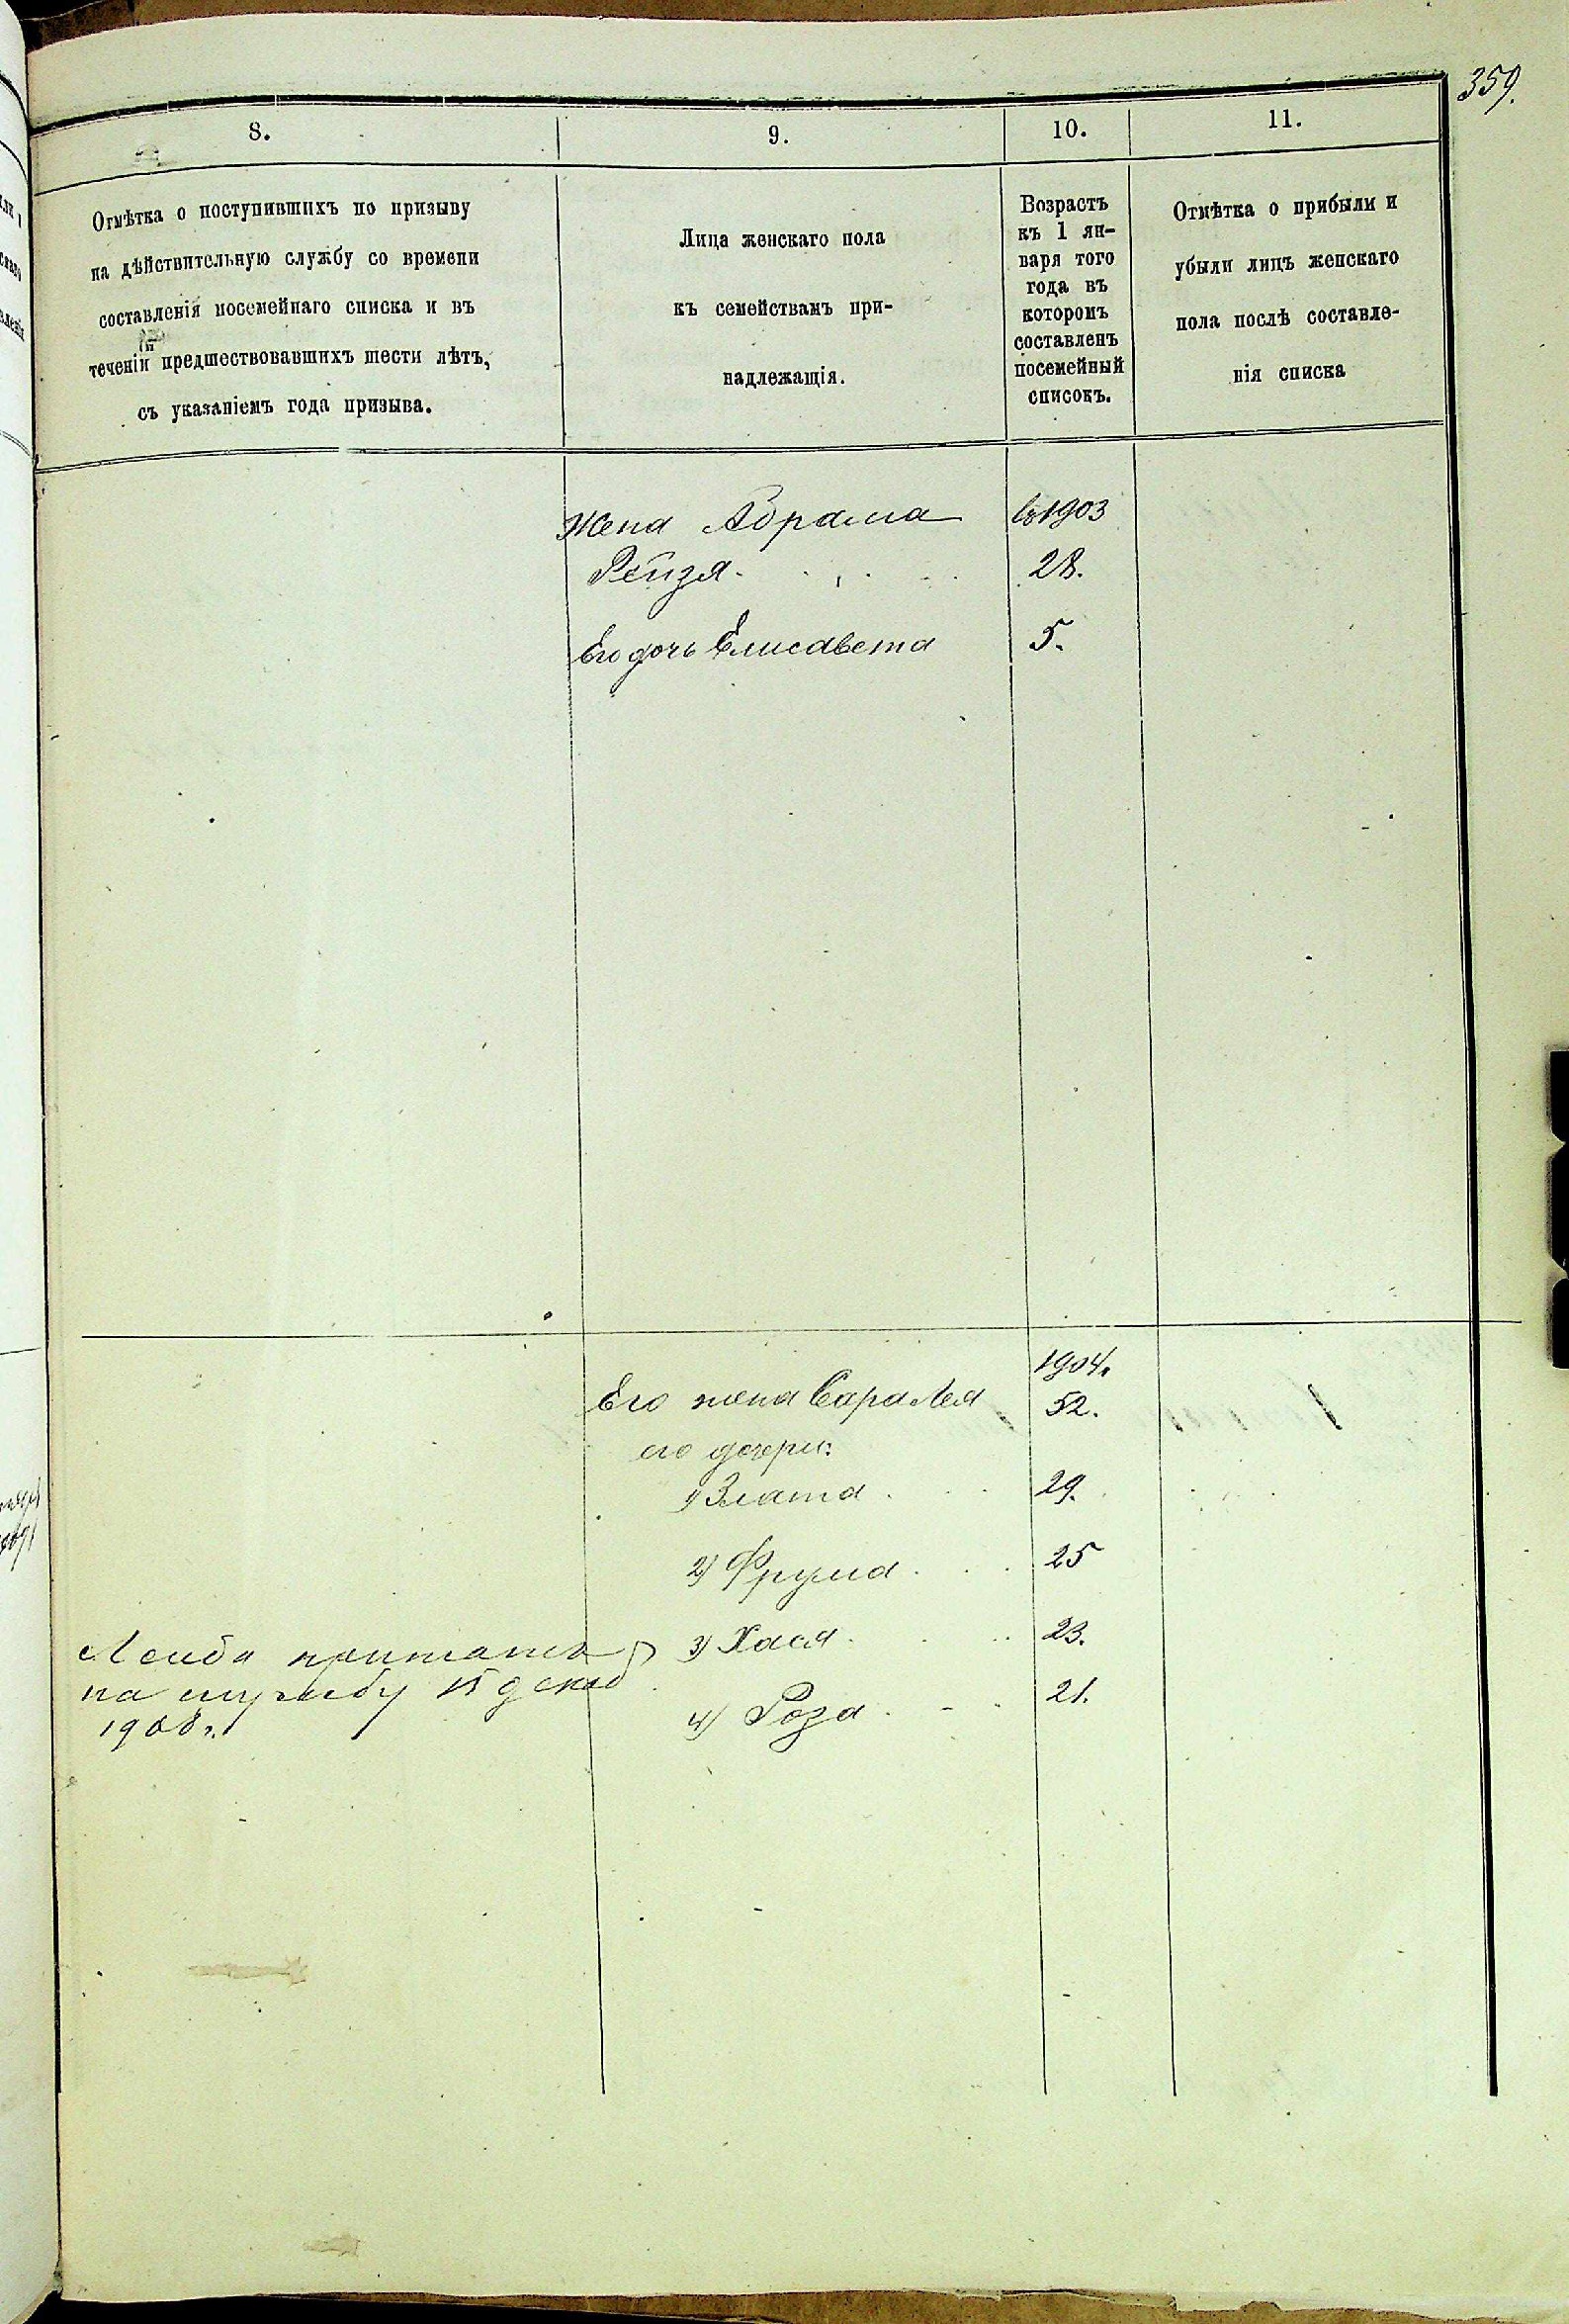 359.
8.
9.
10.
11.
Отмѣтка о поступившихъ по призыву
на дѣйствительную службу со времени
составленія посемейнаго списка и въ
теченіи предшествовавшихъ шести лѣтъ,
съ указаніемъ года призыва.
Лица женскаго пола
къ семействамъ при-
надлежащія.
Возрастъ
къ 1 ян-
варя того
года въ
которомъ
составленъ
посемейный
списокъ.
Отмѣтка о прибыли и
убыли лицъ женскаго
пола послѣ составле-
нія списка
Жена Абрама въ 1903
Рейзя 28.
Его дочь Елисавета 5.
1904.
Его жена Сара Лея 52.
его дочери:
1) Злата 29.
2) Фрума 25
3) Хася 23.
4) Роза 21.
Лейба принятъ
на службу 15 декаб
1908 г.